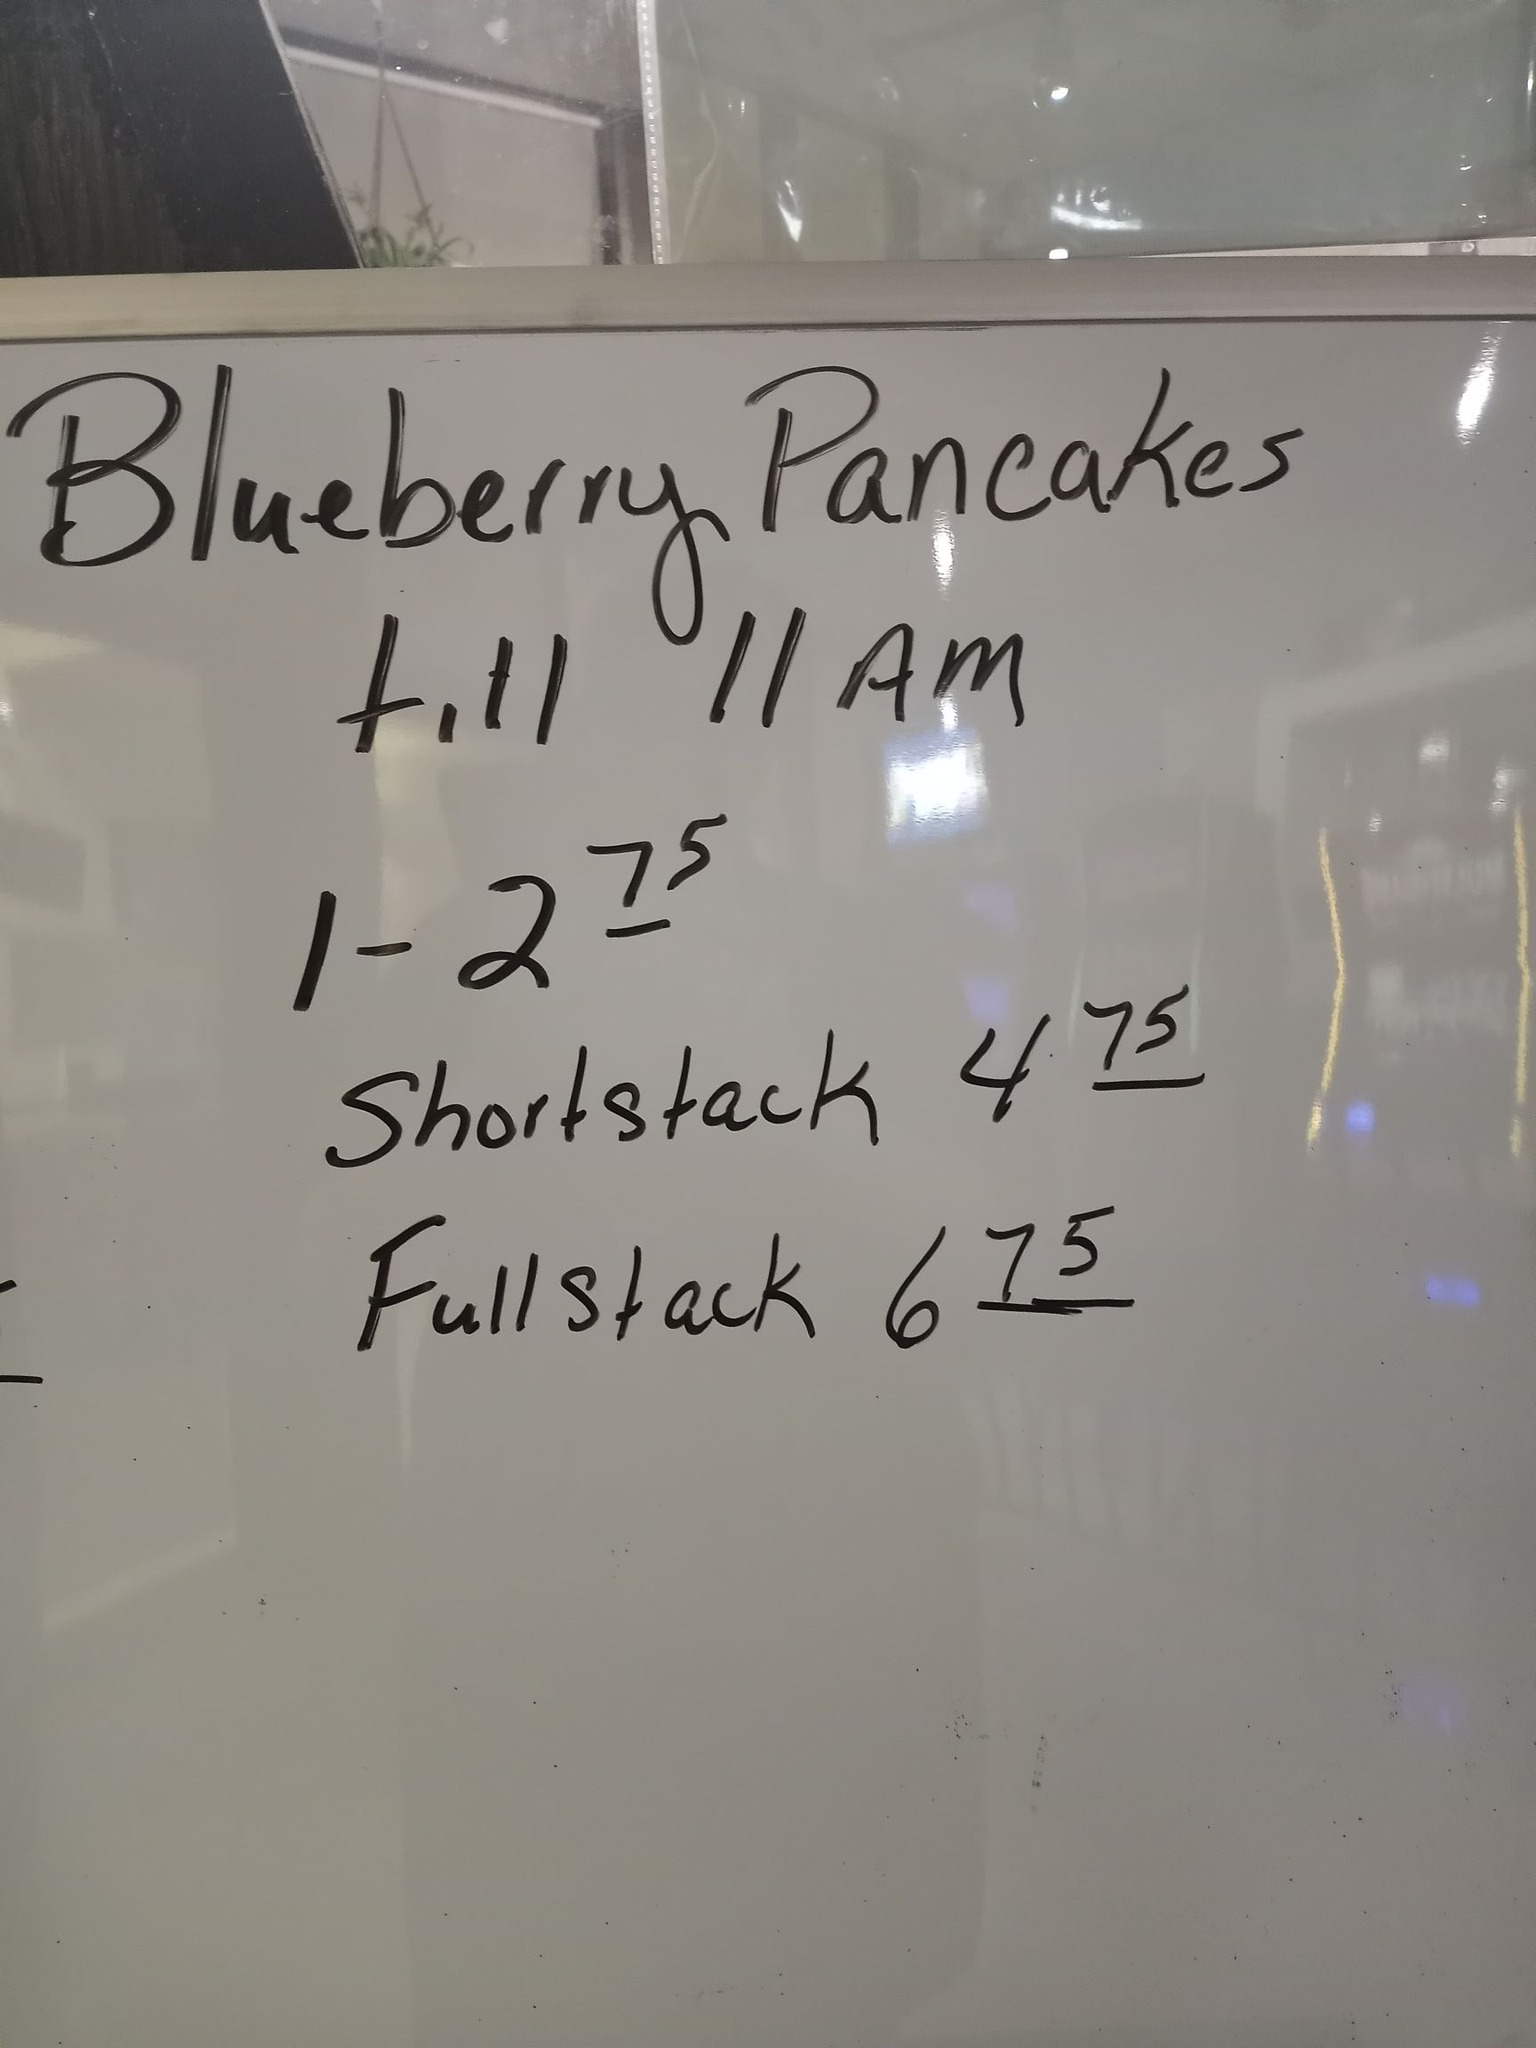 Blueberry Pancakes
till 11 AM
1 - 2 75
Shortstack 4 75
Fullstack 6 75